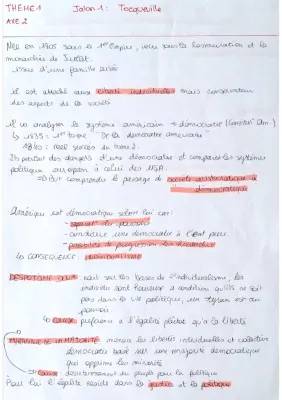 THÈME 1 Jalon 1: Tocqueville
AXE 2
Née en 1805 sous le 1er Empire, vécu sous la restauration et la
monarchie de Juillet.
issu d'une famille
il est attaché aux libertés individuelles mais conservateur
des aspects de la société
il va analyser le système américain → démocratie
↳ 1835: 1er tome "De la démocratie américaine"
1840: réel succès du tome 2.
des dangers d'une démocratie et les systèmes
politique européen à celui des USA.
→ comprendre le passage de société aristocratique à
démocratique
Amérique est démocratique selon lui car:
- séparat° des pouvoirs
- une démocratie à
- possibilité de progression
↳ CONSEQUENCE:
DESPOTISME DOUX: sur les bases de l'individualisme, les
individu sont à condition qu'ils ne soit
pas dans la vie politique, un tyran est au
pouvoir.
↳ cause: préférence à l'égalité plutôt qu'à la liberté
TYRANNIE DE LA MAJORITÉ: menace les libertés individuelles et collective
démocratie basé sur une majorité démocratique
qui opprime les minorités
↳ cause: du peuple pour la politique
Pour lui l'égalité réside dans la justice et la politique